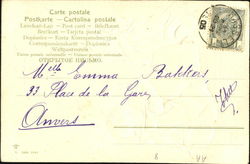 Carte postale
Postkarte - Cartolina postale
Levelező-Lap - Post card - Briefkaart
Brefkort - Tarjeta postal
Dopisnice - Karta Korespondencyjna
Correspondenzkarte - Dopisnica
Weltpostverein
ОТКРЫТОЕ ПИСЬМО.
Melle Emma Bakkers
33 Place de la Gare
Anvers